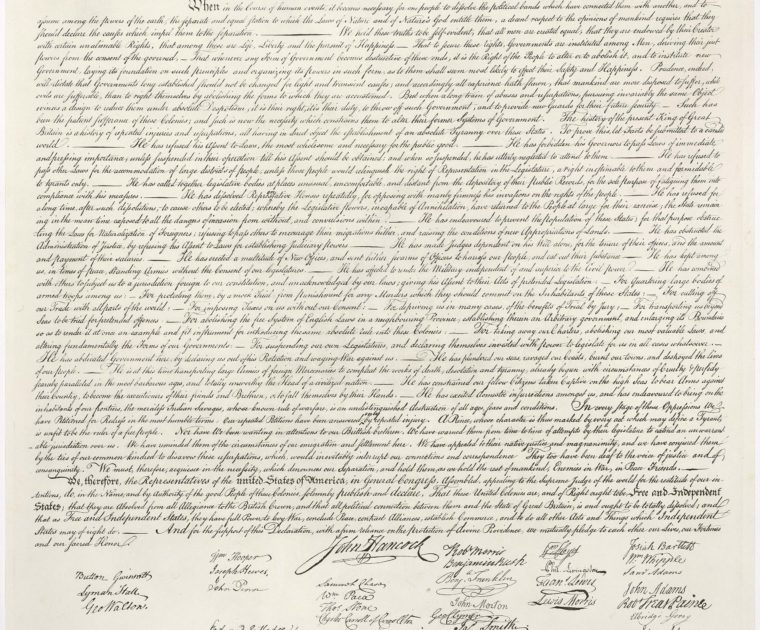 When in the Course of human events, it becomes necessary for one people to dissolve the political bands which have connected them with another, and to
assume among the powers of the earth, the separate and equal station to which the Laws of Nature and of Nature's God entitle them, a decent respect to the opinions of mankind requires that they
should declare the causes which impel them to the separation. — We hold these truths to be self-evident, that all men are created equal, that they are endowed by their Creator
with certain unalienable Rights, that among these are Life, Liberty and the pursuit of Happiness. — That to secure these rights, Governments are instituted among Men, deriving their just
powers from the consent of the governed, — That whenever any Form of Government becomes destructive of these ends, it is the Right of the People to alter or to abolish it, and to institute new
Government, laying its foundation on such principles and organizing its powers in such form, as to them shall seem most likely to effect their Safety and Happiness. Prudence, indeed,
will dictate that Governments long established should not be changed for light and transient causes; and accordingly all experience hath shewn, that mankind are more disposed to suffer, while
evils are sufferable, than to right themselves by abolishing the forms to which they are accustomed. But when a long train of abuses and usurpations, pursuing invariably the same Object
evinces a design to reduce them under absolute Despotism, it is their right, it is their duty, to throw off such Government, and to provide new Guards for their future security. — Such has
been the patient sufferance of these Colonies; and such is now the necessity which constrains them to alter their former Systems of Government. The history of the present King of Great
Britain is a history of repeated injuries and usurpations, all having in direct object the establishment of an absolute Tyranny over these States. To prove this, let Facts be submitted to a candid
world. — He has refused his Assent to Laws, the most wholesome and necessary for the public good. — He has forbidden his Governors to pass Laws of immediate
and pressing importance, unless suspended in their operation till his Assent should be obtained; and when so suspended, he has utterly neglected to attend to them. — He has refused to
pass other Laws for the accommodation of large districts of people, unless those people would relinquish the right of Representation in the Legislature, a right inestimable to them and formidable
to tyrants only. — He has called together legislative bodies at places unusual, uncomfortable, and distant from the depository of their Public Records, for the sole purpose of fatiguing them into
compliance with his measures. — He has dissolved Representative Houses repeatedly, for opposing with manly firmness his invasions on the rights of the people. — He has refused for
a long time, after such dissolutions, to cause others to be elected; whereby the Legislative powers, incapable of Annihilation, have returned to the People at large for their exercise; the State remain-
ing in the mean time exposed to all the dangers of invasion from without, and convulsions within. — He has endeavoured to prevent the population of these States; for that purpose obstruc-
ting the Laws for Naturalization of Foreigners; refusing to pass others to encourage their migrations hither, and raising the conditions of new Appropriations of Lands. — He has obstructed the
Administration of Justice, by refusing his Assent to Laws for establishing Judiciary powers. — He has made Judges dependent on his Will alone, for the tenure of their offices, and the amount
and payment of their salaries. — He has erected a multitude of New Offices, and sent hither swarms of Officers to harrass our people, and eat out their substance. — He has kept among
us, in times of peace, Standing Armies without the Consent of our legislatures. — He has affected to render the Military independent of and superior to the Civil power. — He has combined
with others to subject us to a jurisdiction foreign to our constitution, and unacknowledged by our laws; giving his Assent to their Acts of pretended Legislation: — For Quartering large bodies of
armed troops among us: — For protecting them, by a mock Trial, from punishment for any Murders which they should commit on the Inhabitants of these States: — For cutting off
our Trade with all parts of the world: — For imposing Taxes on us without our Consent: — For depriving us in many cases, of the benefits of Trial by Jury: — For transporting us beyond
Seas to be tried for pretended offences — For abolishing the free System of English Laws in a neighbouring Province, establishing therein an Arbitrary government, and enlarging its Boundaries
so as to render it at once an example and fit instrument for introducing the same absolute rule into these Colonies: — For taking away our Charters, abolishing our most valuable Laws, and
altering fundamentally the Forms of our Governments: — For suspending our own Legislatures, and declaring themselves invested with power to legislate for us in all cases whatsoever. —
He has abdicated Government here, by declaring us out of his Protection and waging War against us. — He has plundered our seas, ravaged our Coasts, burnt our towns, and destroyed the lives
of our people. — He is at this time transporting large Armies of foreign Mercenaries to compleat the works of death, desolation and tyranny, already begun with circumstances of Cruelty & perfidy
scarcely paralleled in the most barbarous ages, and totally unworthy the Head of a civilized nation. — He has constrained our fellow Citizens taken Captive on the high Seas to bear Arms against
their Country, to become the executioners of their friends and Brethren, or to fall themselves by their Hands. — He has excited domestic insurrections amongst us, and has endeavoured to bring on the
inhabitants of our frontiers, the merciless Indian Savages, whose known rule of warfare, is an undistinguished destruction of all ages, sexes and conditions. In every stage of these Oppressions We
have Petitioned for Redress in the most humble terms: Our repeated Petitions have been answered only by repeated injury. A Prince, whose character is thus marked by every act which may define a Tyrant,
is unfit to be the ruler of a free people. Nor have We been wanting in attentions to our Brittish brethren. We have warned them from time to time of attempts by their legislature to extend an unwarrant-
able jurisdiction over us. We have reminded them of the circumstances of our emigration and settlement here. We have appealed to their native justice and magnanimity, and we have conjured them
by the ties of our common kindred to disavow these usurpations, which, would inevitably interrupt our connections and correspondence. They too have been deaf to the voice of justice and of
consanguinity. We must, therefore, acquiesce in the necessity, which denounces our Separation, and hold them, as we hold the rest of mankind, Enemies in War, in Peace Friends. —
We, therefore, the Representatives of the united States of America, in General Congress, Assembled, appealing to the Supreme Judge of the world for the rectitude of our in-
tentions, do, in the Name, and by authority of the good People of these Colonies, solemnly publish and declare, That these United Colonies are, and of Right ought to be, Free and Independent
States; that they are Absolved from all Allegiance to the British Crown, and that all political connection between them and the State of Great Britain, is and ought to be totally dissolved; and
that as Free and Independent States, they have full Power to levy War, conclude Peace, contract Alliances, establish Commerce, and to do all other Acts and Things which Independent
States may of right do. — And for the support of this Declaration, with a firm reliance on the Protection of divine Providence, we mutually pledge to each other our Lives, our Fortunes
and our sacred Honor.
Button Gwinnett
Lyman Hall
Geo Walton.
Wm Hooper
Joseph Hewes,
John Penn
John Hancock
Samuel Chase
Wm Paca
Thos. Stone
Charles Carroll of Carrollton
Robt Morris
Benjamin Rush
Benj. Franklin
John Morton
Geo Clymer
Jas. Smith
Wm Floyd
Phil. Livingston
Fran. Lewis
Lewis Morris
Josiah Bartlett
Wm Whipple
Saml Adams
John Adams
Robt Treat Paine
Elbridge Gerry